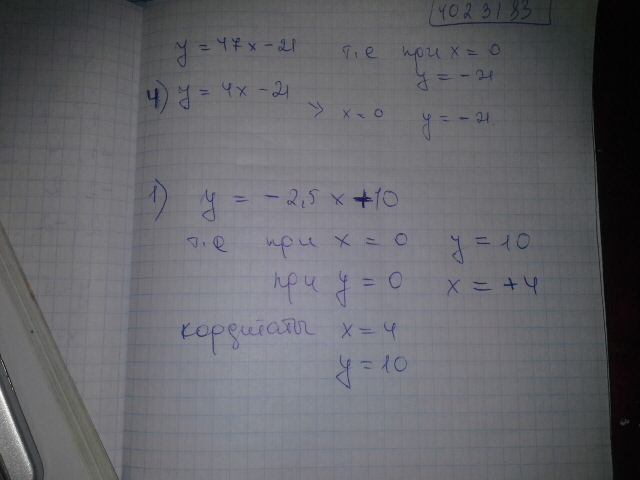 4023133
y = 47x - 21 т.е при x = 0
y = - 21
4) y = 4x - 21
> x = 0 y = - 21
1) y = - 2,5 x + 10
т.е при x = 0 y = 10
при y = 0 x = + 4
кордитаты x = 4
y = 10